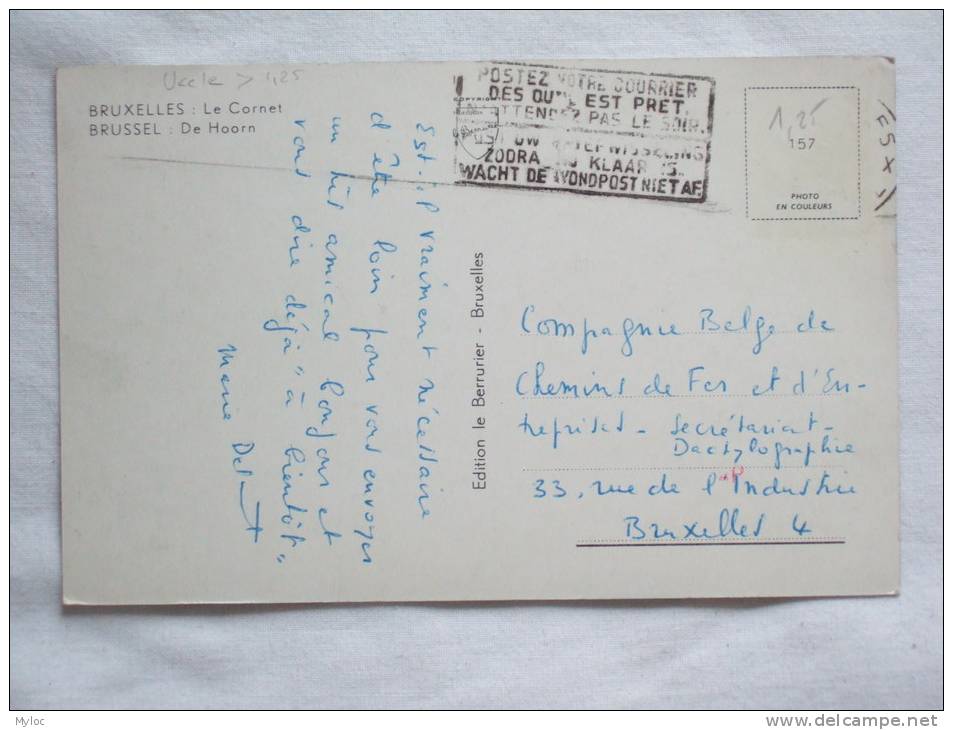 Uccle > 1,25
BRUXELLES : Le Cornet
BRUSSEL : De Hoorn
POSTEZ VOTRE COURRIER
DES QU'IL EST PRET,
N'ATTENDEZ PAS LE SOIR.
UW
ZODRA KLAAR IS.
WACHT DE AVONDPOST NIET AF.
1,25
157
PHOTO
EN COULEURS
Est-il vraiment nécessaire
d'être loin pour vous envoyer
un très amical bonjour et
vous dire déjà "à bientôt"
Marie
Edition le Berrurier - Bruxelles
Compagnie Belge de
Chemins de Fer et d'En-
treprises - Secrétariat-
Dactylographie
33, rue de l'Industrie
Bruxelles 4
Myloc
www.delcampe.net